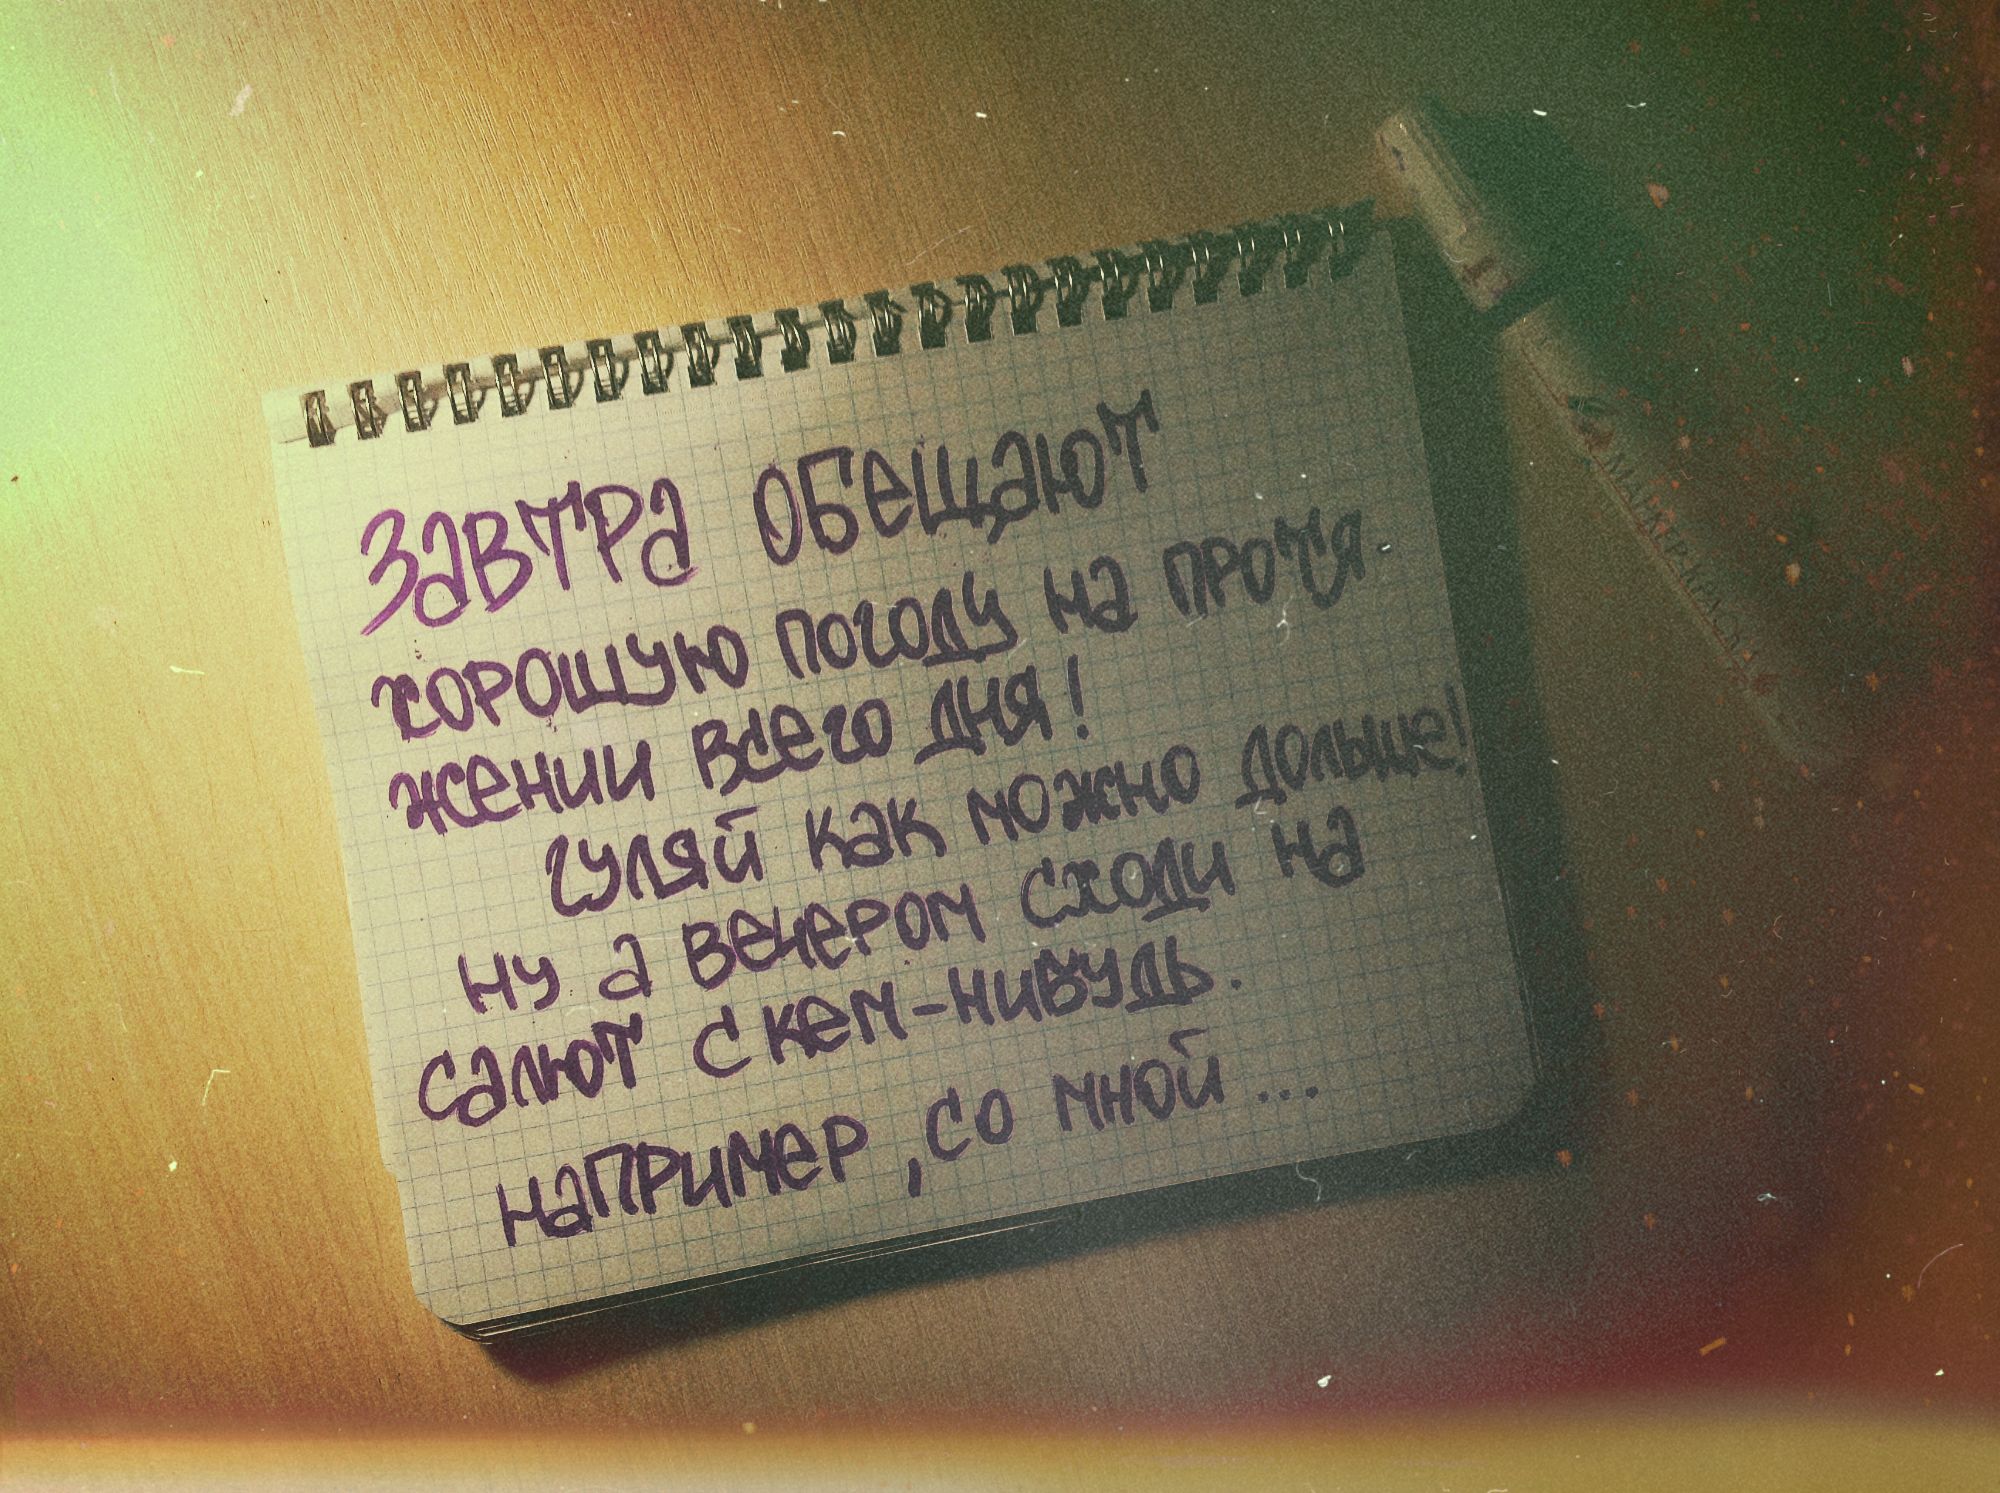 Завтра обещают
хорошую погоду на протя
жении всего дня!
гуляй как можно дольше!
ну а вечером сходи на
салют с кем-нибудь.
например, со мной...
МАРКЕР-КРАСКА